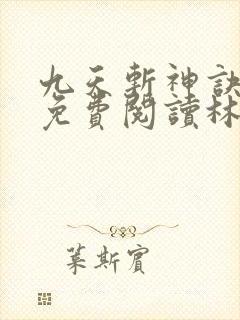 九天斬神訣
免費閱讀林
葉斯賓